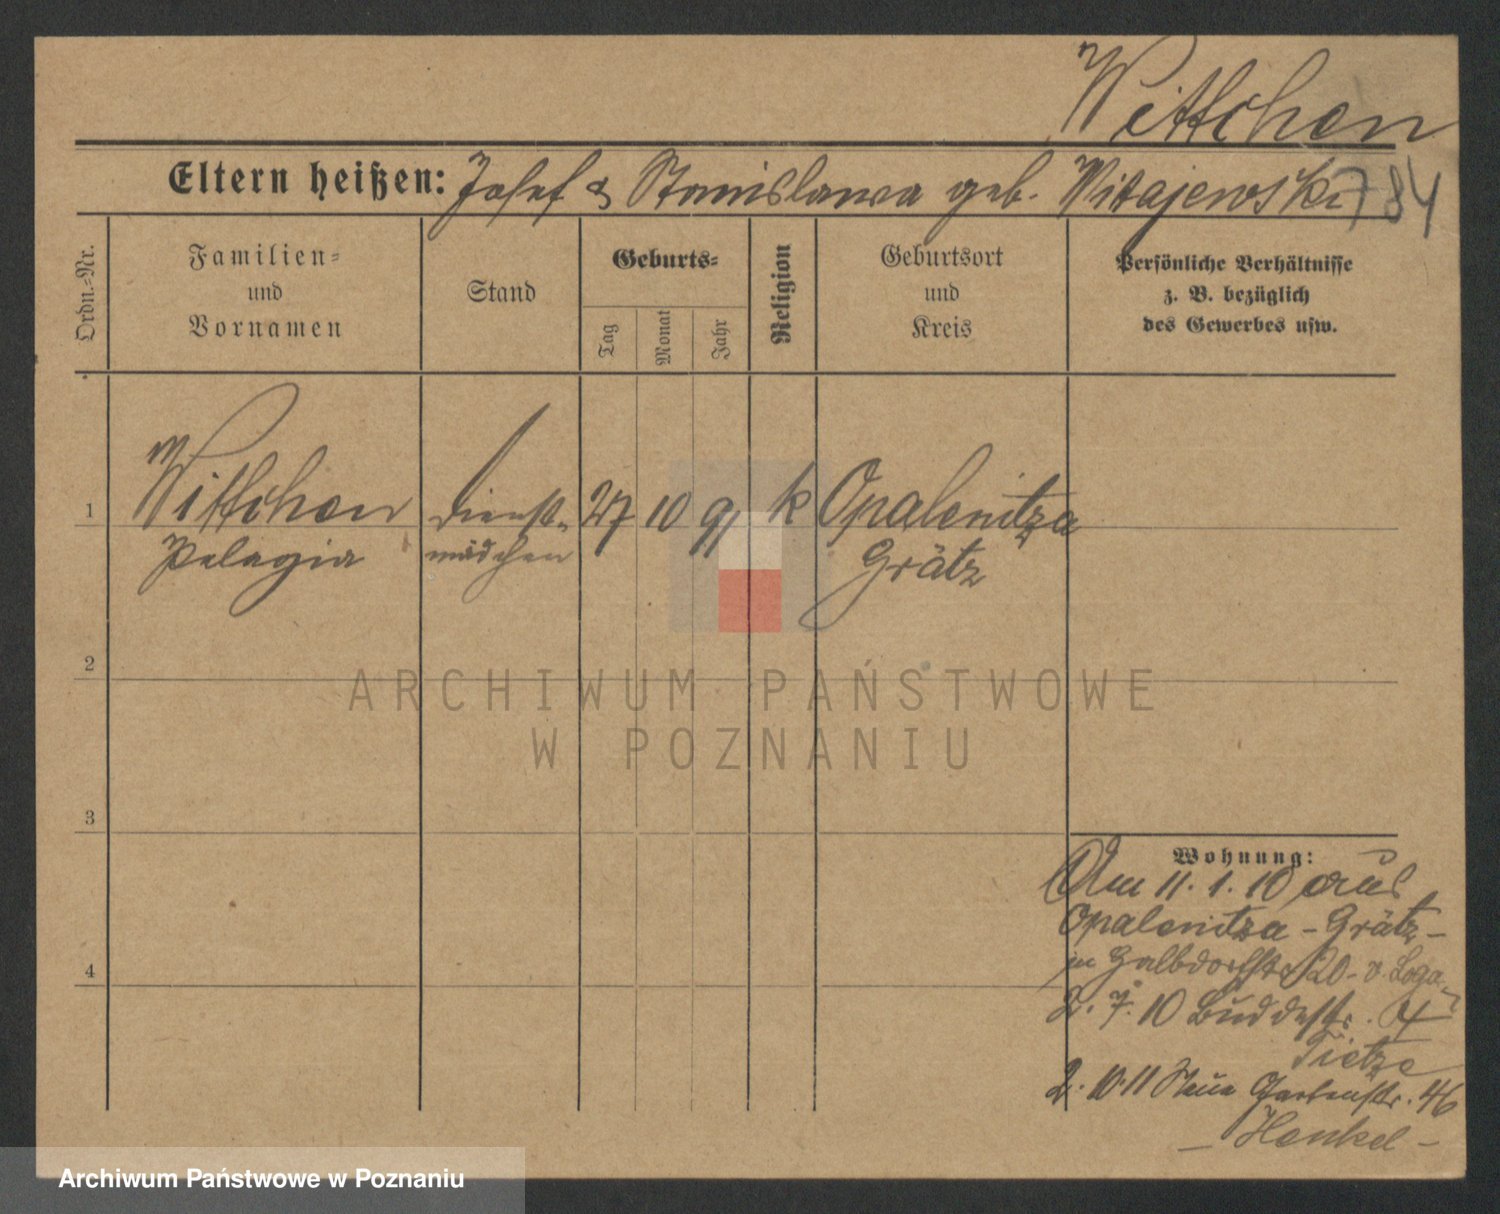 Wittchen
Eltern heißen: Josef & Stanislawa geb. Witajewski 784
Ordn.-Nr.
Familien-
und
Vornamen
Stand
Geburts-
Tag
Monat
Jahr
Religion
Geburtsort
und
Kreis
Persönliche Verhältnisse
z. B. bezüglich
des Gewerbes usw.
1
Wittchen
Pelagia
Dienst-
mädchen
27 10 91 k
Opalenitza
Grätz
2
ARCHIWUM PAŃSTWOWE
W POZNANIU
3
4
Wohnung:
Am 11. 1. 10 aus
Opalenitza - Grätz -
20 -
2. 7. 10 Buddestr. 4
Tietze
2. 10. 11 Neue Gartenstr. 46
- Henkel -
Archiwum Państwowe w Poznaniu